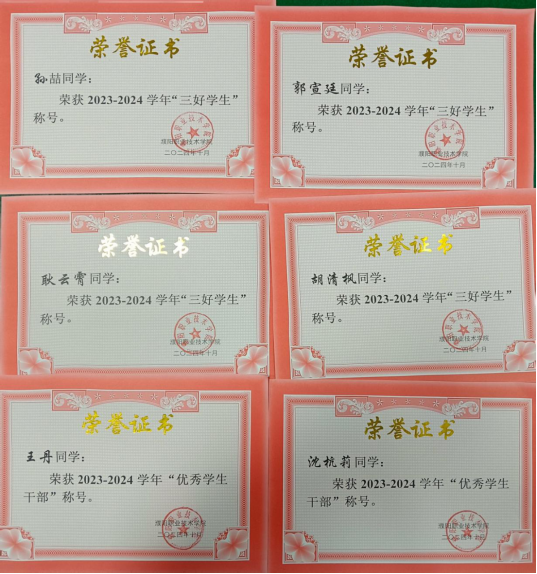 荣誉证书
孙喆同学：
荣获 2023-2024 学年“三好学生”
称号。
濮阳职业技术学院
二〇二四年十月
荣誉证书
郭宣廷同学：
荣获 2023-2024 学年“三好学生”
称号。
濮阳职业技术学院
二〇二四年十月
荣誉证书
耿云霄同学：
荣获 2023-2024 学年“三好学生”
称号。
濮阳职业技术学院
二〇二四年十月
荣誉证书
胡清枫同学：
荣获 2023-2024 学年“三好学生”
称号。
濮阳职业技术学院
二〇二四年十月
荣誉证书
王丹同学：
荣获 2023-2024 学年“优秀学生
干部”称号。
濮阳职业技术学院
二〇二四年十月
荣誉证书
沈杭莉同学：
荣获 2023-2024 学年“优秀学生
干部”称号。
濮阳职业技术学院
二〇二四年十月